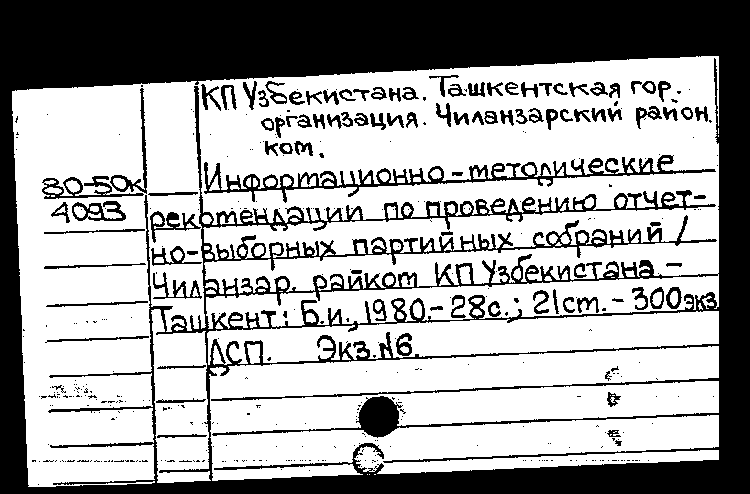 КП Узбекистана. Ташкентская гор.
организация. Чиланзарский район.
ком.
80-50к
Информационно-методические
4093
рекомендации по проведению отчет-
но-выборных партийных собраний /
Чиланзар. райком КП Узбекистана. –
Ташкент: Б.и., 1980. – 28с.; 21cm. – 300экз
ДСП. Экз.№6.